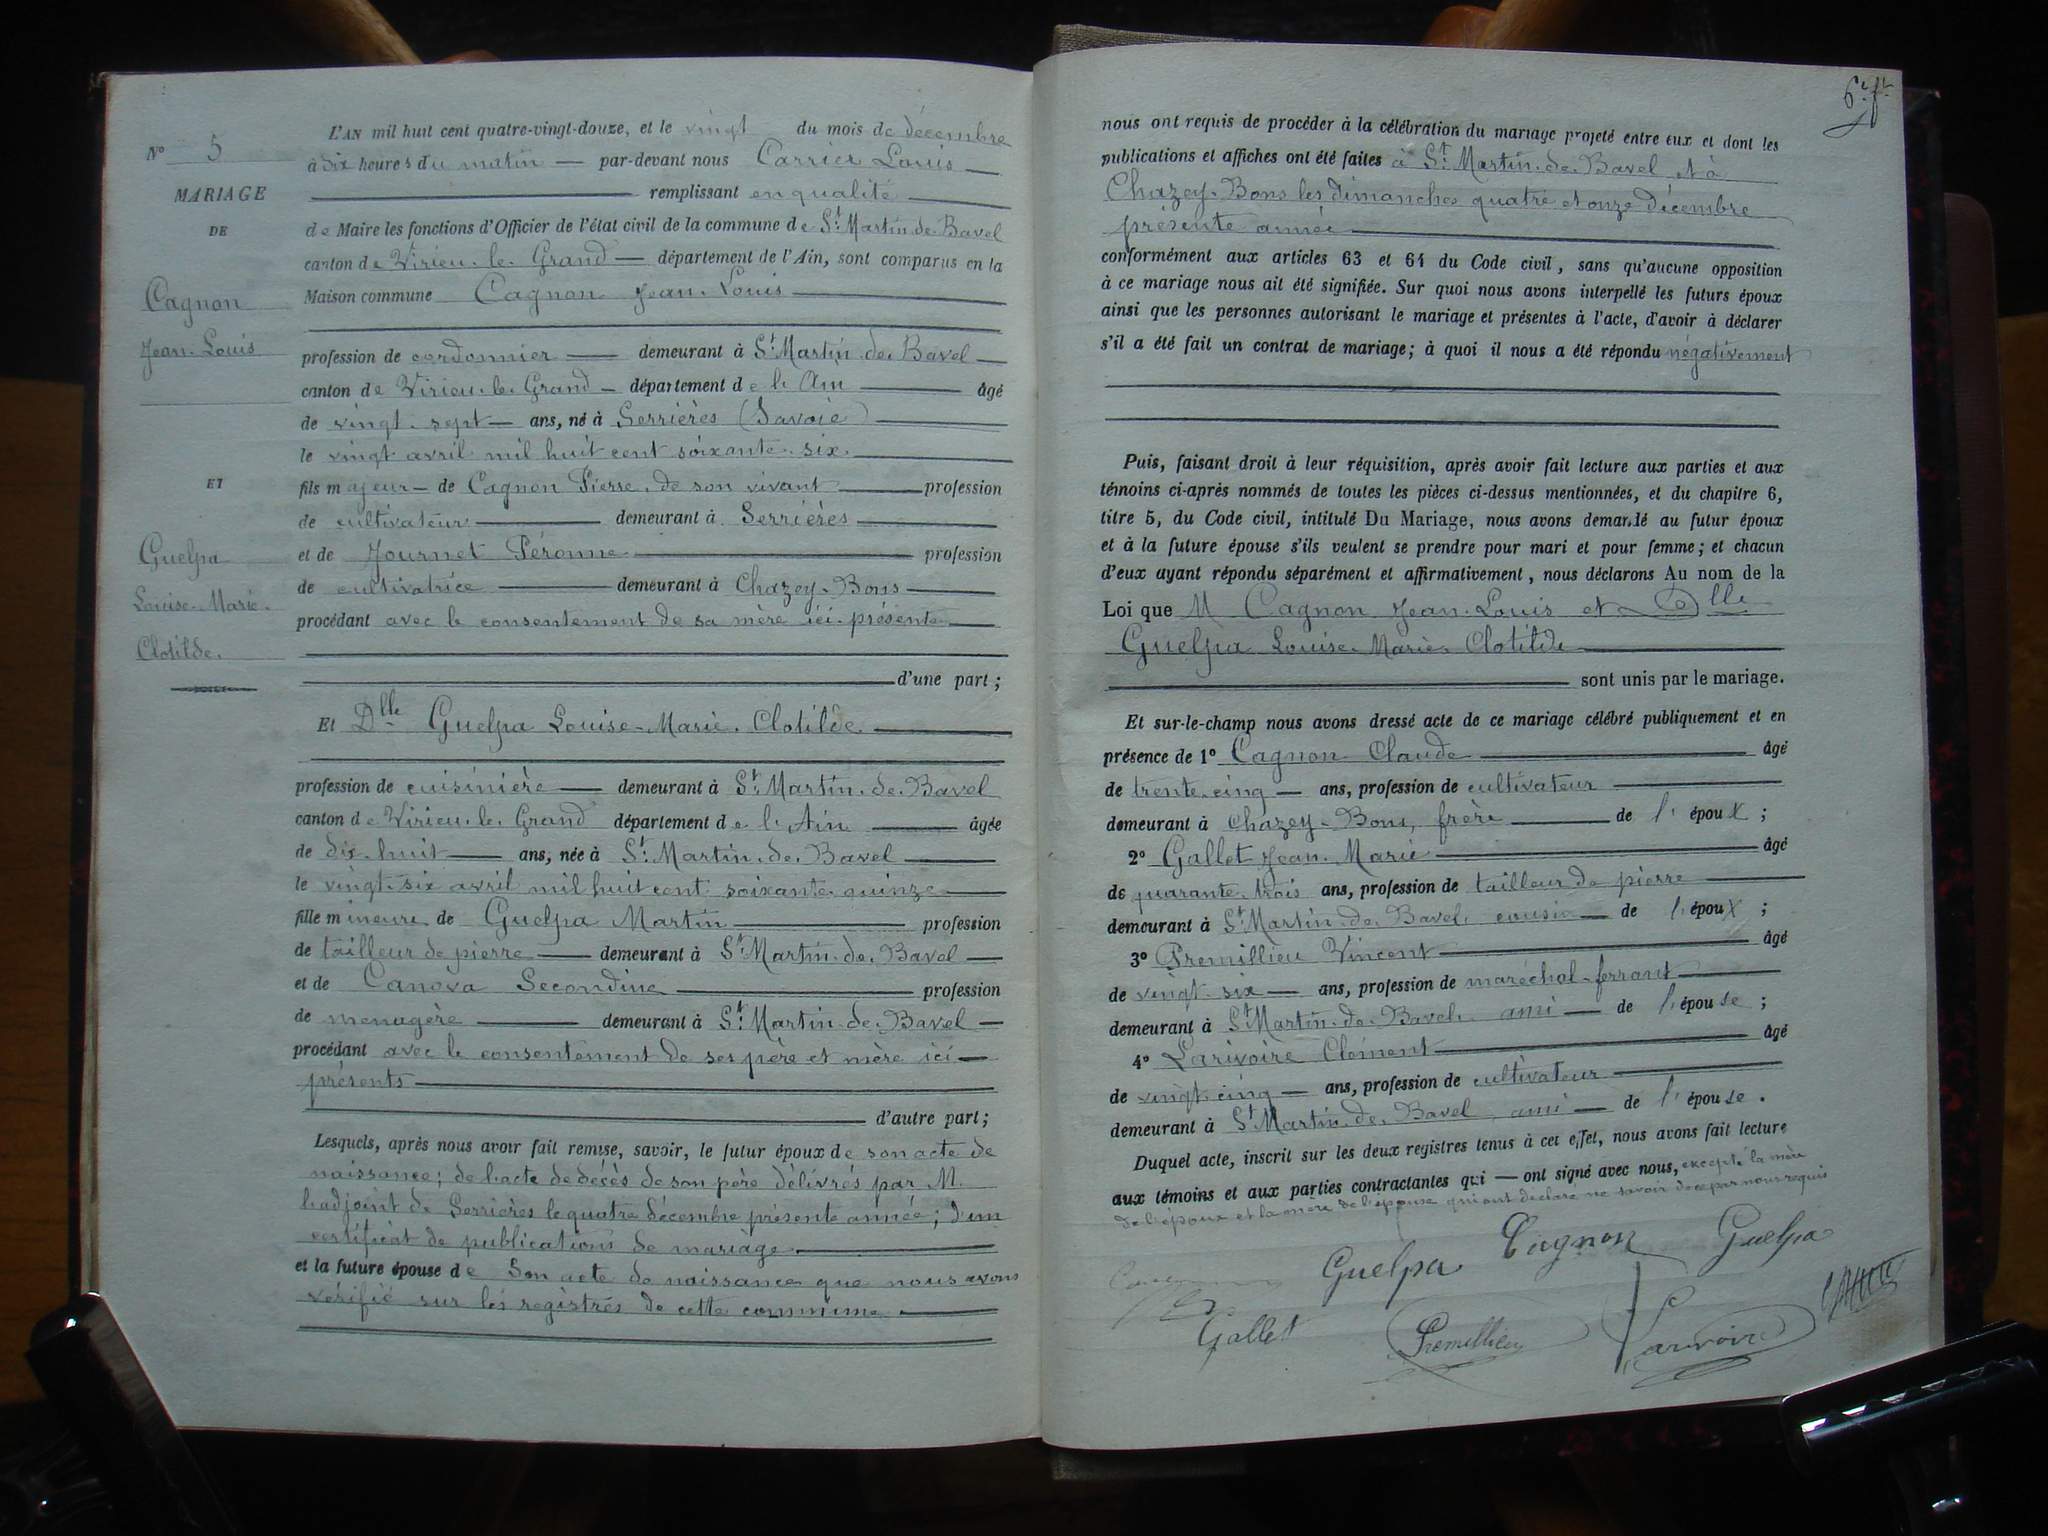 N° 5
MARIAGE
DE
Cagnon
Jean-Louis
ET
Guelpa
Louise-Marie-
Clotilde.
L'AN mil huit cent quatre-vingt-douze, et le vingt du mois de décembre
à dix heures du matin — par-devant nous Carrier Louis
remplissant en qualité
de Maire les fonctions d'Officier de l'état civil de la commune de St Martin-de-Bavel
canton de Virieu-le-Grand — département de l'Ain, sont comparus en la
Maison commune Cagnon Jean-Louis
profession de cordonnier — demeurant à St Martin-de-Bavel
canton de Virieu-le-Grand — département de l'Ain — âgé
de vingt-sept — ans, né à Serrières (Savoie)
le vingt avril mil huit cent soixante-six.
fils majeur — de Cagnon Pierre, de son vivant — profession
de cultivateur — demeurant à Serrières
et de Journet Péronne — profession
de cultivatrice — demeurant à Chazey-Bons
procédant avec le consentement de sa mère ici-présente
d'une part ;
Et Dlle Guelpa Louise-Marie-Clotilde
profession de cuisinière — demeurant à St Martin-de-Bavel
canton de Virieu-le-Grand département de l'Ain — âgée
de dix-huit — ans, née à St Martin-de-Bavel
le vingt-six avril mil huit cent soixante-quinze
fille mineure de Guelpa Martin — profession
de tailleur de pierre — demeurant à St Martin-de-Bavel
et de Canova Secondine — profession
de menagère — demeurant à St Martin-de-Bavel
procédant avec le consentement de ses père et mère ici
présents
d'autre part ;
Lesquels, après nous avoir fait remise, savoir, le futur époux de son acte de
naissance; de l'acte de décès de son père délivrés par M.
l'adjoint de Serrières le quatre décembre présente année; d'un
certificat de publications de mariage
et la future épouse de son acte de naissance que nous avons
vérifié sur les registres de cette commune
6e ft
nous ont requis de procéder à la célébration du mariage projeté entre eux et dont les
publications et affiches ont été faites à St Martin-de-Bavel et à
Chazey-Bons les dimanches quatre et onze décembre
présente année
conformément aux articles 63 et 64 du Code civil, sans qu'aucune opposition
à ce mariage nous ait été signifiée. Sur quoi nous avons interpellé les futurs époux
ainsi que les personnes autorisant le mariage et présentes à l'acte, d'avoir à déclarer
s'il a été fait un contrat de mariage ; à quoi il nous a été répondu négativement
Puis, faisant droit à leur réquisition, après avoir fait lecture aux parties et aux
témoins ci-après nommés de toutes les pièces ci-dessus mentionnées, et du chapitre 6,
titre 5, du Code civil, intitulé Du Mariage, nous avons demandé au futur époux
et à la future épouse s'ils veulent se prendre pour mari et pour femme ; et chacun
d'eux ayant répondu séparément et affirmativement, nous déclarons Au nom de la
Loi que M Cagnon Jean-Louis et Dlle
Guelpa Louise-Marie-Clotilde
sont unis par le mariage.
Et sur-le-champ nous avons dressé acte de ce mariage célébré publiquement et en
présence de 1° Cagnon Claude — âgé
de trente-cinq — ans, profession de cultivateur
demeurant à Chazey-Bons, frère — de l'époux ;
2° Gallet Jean-Marie — âgé
de quarante-trois ans, profession de tailleur de pierre
demeurant à St Martin-de-Bavel, cousin — de l'époux ;
3° Premillieu Vincent — âgé
de vingt-six — ans, profession de maréchal-ferrant
demeurant à St Martin-de-Bavel, ami — de l'épouse ;
4° Larivoire Clément — âgé
de vingt-cinq — ans, profession de cultivateur
demeurant à St Martin-de-Bavel, ami — de l'épouse .
Duquel acte, inscrit sur les deux registres tenus à cet effet, nous avons fait lecture
aux témoins et aux parties contractantes qui — ont signé avec nous, excepté la mère
de l'époux et la mère de l'épouse qui ont déclaré ne savoir de ce par nous requis
Guelpa Cagnon Guelpa
Gallet Premillieu Larivoire